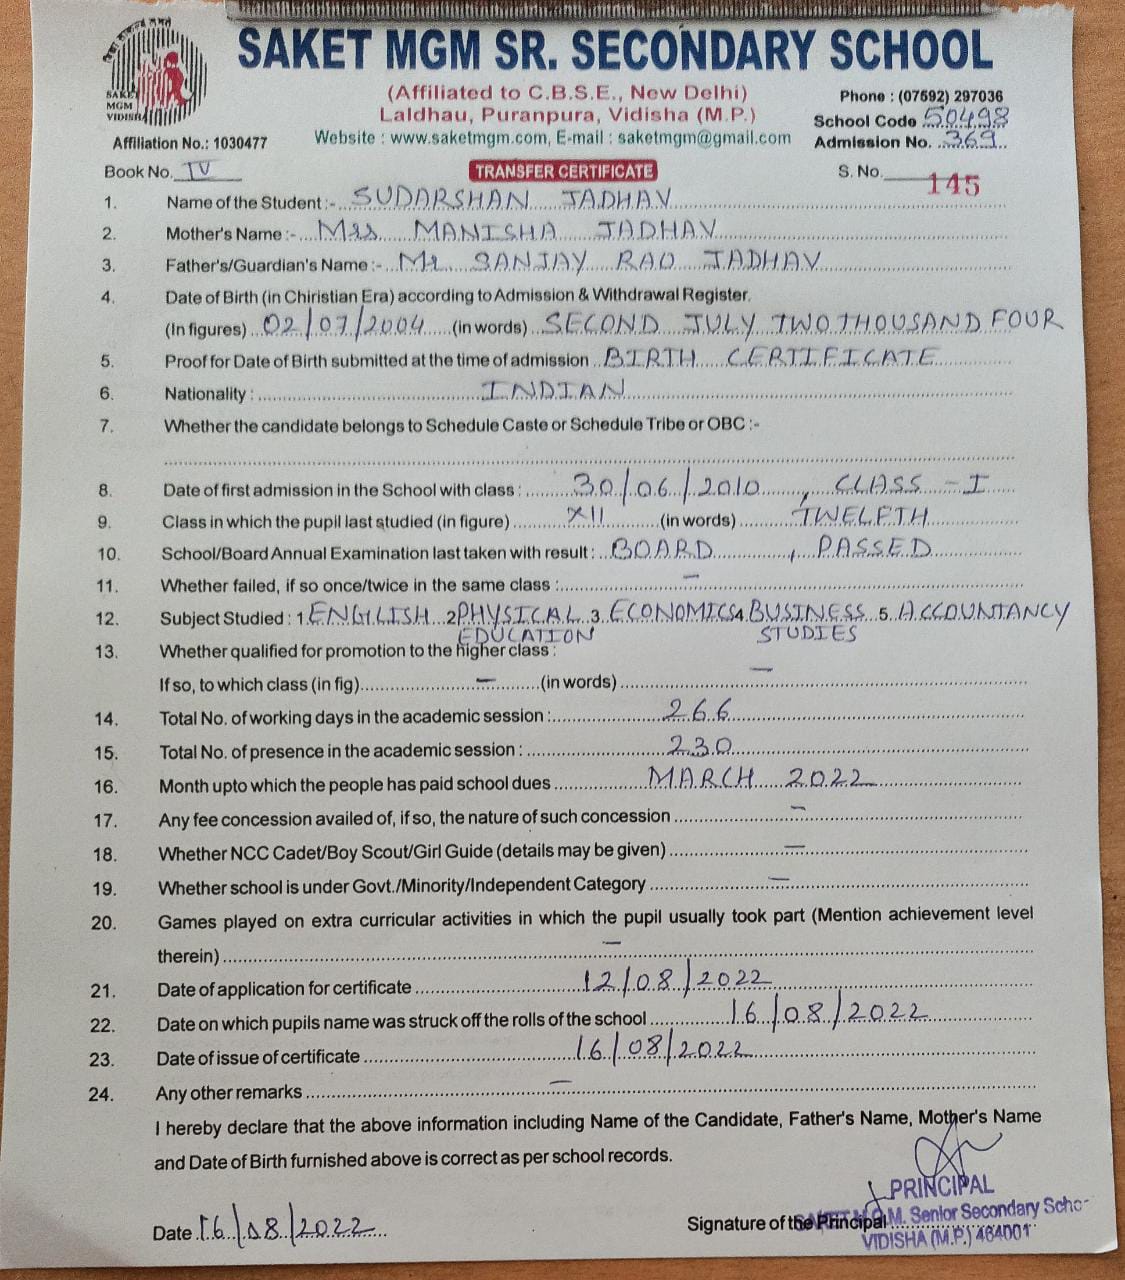 SAKET MGM SR. SECONDARY SCHOOL
SAKET
MGM
VIDISHA
(Affiliated to C.B.S.E., New Delhi)
Laldhau, Puranpura, Vidisha (M.P.)
Website : www.saketmgm.com, E-mail : saketmgm@gmail.com
Phone : (07592) 297036
School Code 50498
Affiliation No.: 1030477
Admission No. 369
Book No. IV
TRANSFER CERTIFICATE
S. No. 145
1. Name of the Student :- SUDARSHAN JADHAV
2. Mother's Name :- Mrs. MANISHA JADHAV
3. Father's/Guardian's Name :- Mr. SANJAY RAO JADHAV
4. Date of Birth (in Chiristian Era) according to Admission & Withdrawal Register.
(In figures) 02/07/2004 (in words) SECOND JULY TWO THOUSAND FOUR
5. Proof for Date of Birth submitted at the time of admission BIRTH CERTIFICATE
6. Nationality : INDIAN
7. Whether the candidate belongs to Schedule Caste or Schedule Tribe or OBC :-
8. Date of first admission in the School with class : 30/06/2010, CLASS - I
9. Class in which the pupil last studied (in figure) XII (in words) TWELFTH
10. School/Board Annual Examination last taken with result : BOARD, PASSED
11. Whether failed, if so once/twice in the same class : –
12. Subject Studied : 1 ENGLISH 2 PHYSICAL 3. ECONOMICS 4 BUSINESS 5. ACCOUNTANCY
EDUCATION STUDIES
13. Whether qualified for promotion to the higher class :
If so, to which class (in fig) – (in words) –
14. Total No. of working days in the academic session : 266
15. Total No. of presence in the academic session : 230
16. Month upto which the people has paid school dues MARCH 2022
17. Any fee concession availed of, if so, the nature of such concession –
18. Whether NCC Cadet/Boy Scout/Girl Guide (details may be given) –
19. Whether school is under Govt./Minority/Independent Category –
20. Games played on extra curricular activities in which the pupil usually took part (Mention achievement level
therein) –
21. Date of application for certificate 12/08/2022
22. Date on which pupils name was struck off the rolls of the school 16/08/2022
23. Date of issue of certificate 16/08/2022
24. Any other remarks –
I hereby declare that the above information including Name of the Candidate, Father's Name, Mother's Name
and Date of Birth furnished above is correct as per school records.
Date 16/08/2022
Signature of the Principal
PRINCIPAL
M. Senior Secondary Scho
VIDISHA (M.P.) 464001